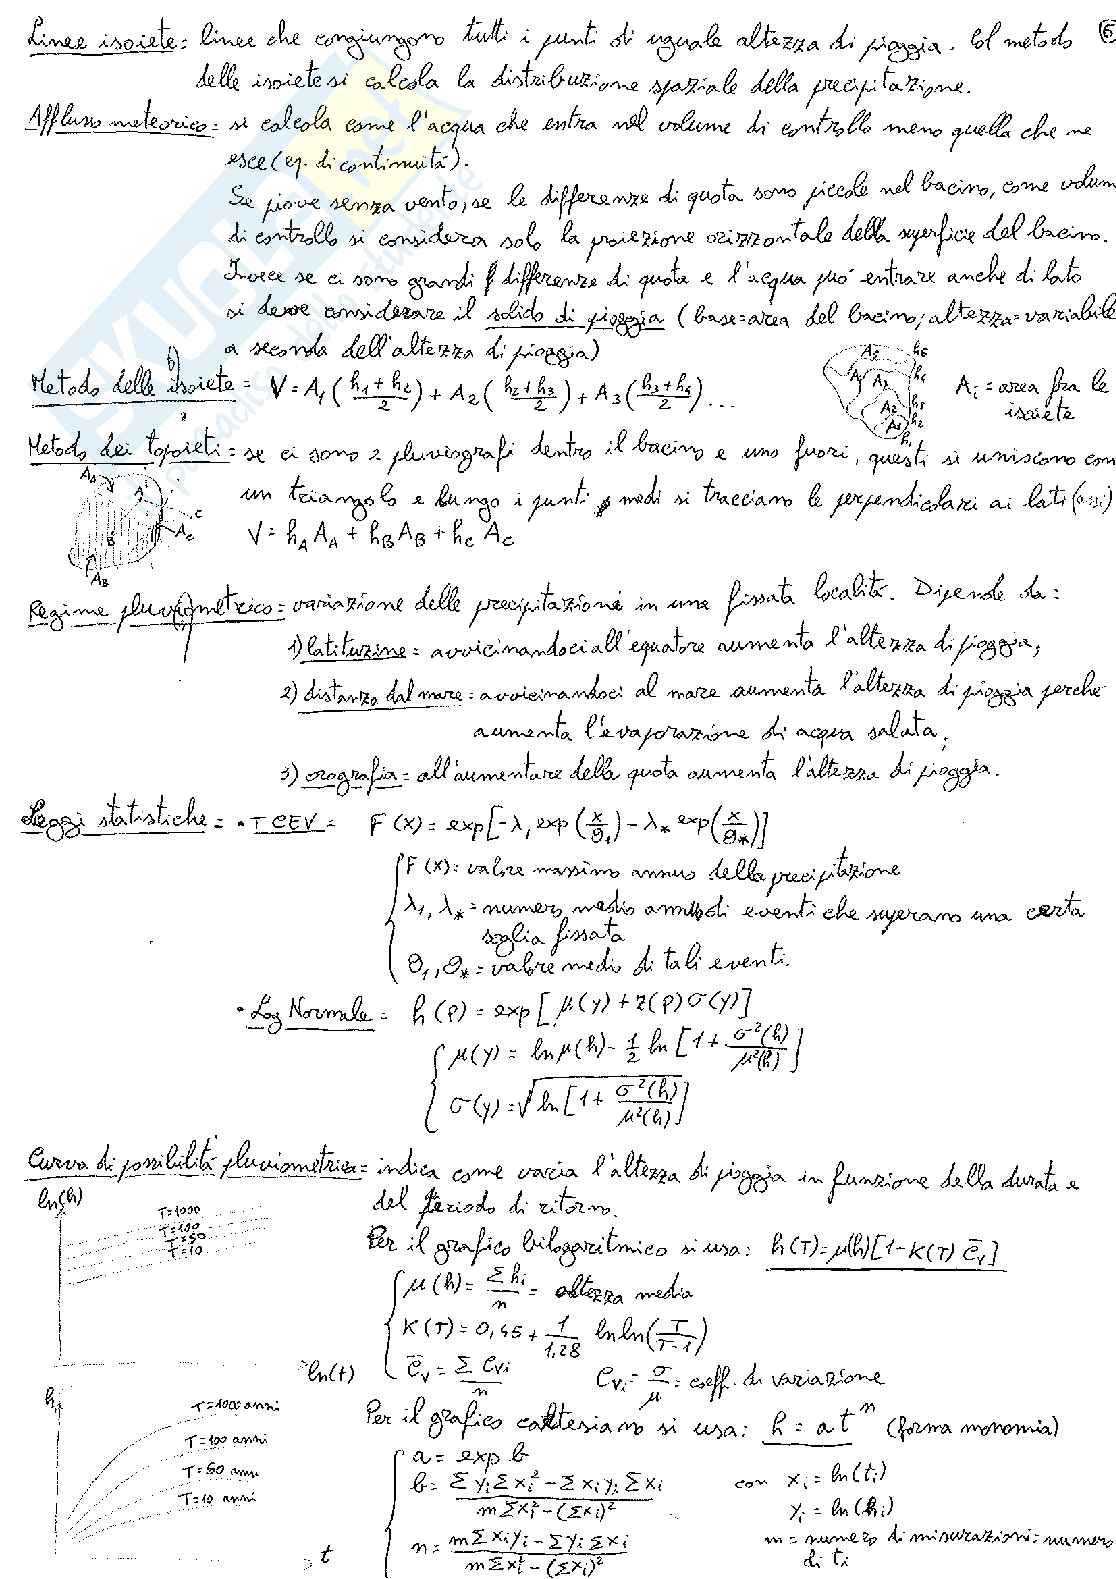 Linee isoiete = linee che congiungono tutti i punti di uguale altezza di pioggia. Col metodo 6
delle isoiete si calcola la distribuzione spaziale della precipitazione.
Afflusso meteorico = si calcola come l'acqua che entra nel volume di controllo meno quella che ne
esce (eq. di continuità).
Se piove senza vento, se le differenze di quota sono piccole nel bacino, come volum
di controllo si considera solo la proiezione orizzontale della superficie del bacino.
Invece se ci sono grandi differenze di quota e l'acqua può entrare anche di lato
si deve considerare il solido di pioggia (base=area del bacino; altezza=variabile
a seconda dell'altezza di pioggia)
Metodo delle isoiete = V = A₁ ((h₁+h₂)/2) + A₂ ((h₂+h₃)/2) + A₃ ((h₃+h₄)/2) ...
Ai = area fra le
isoiete
Metodo dei topoieti = se ci sono 2 pluviografi dentro il bacino e uno fuori, questi si uniscono con
un triangolo e lungo i punti medi si tracciano le perpendicolari ai lati (assi)
V = h_A A_A + h_B A_B + h_C A_C
Regime pluviometrico = variazione delle precipitazioni in una fissata località. Dipende da:
1) latitudine = avvicinandoci all'equatore aumenta l'altezza di pioggia;
2) distanza dal mare = avvicinandoci al mare aumenta l'altezza di pioggia perché
aumenta l'evaporazione di acqua salata;
3) orografia = all'aumentare della quota aumenta l'altezza di pioggia.
Leggi statistiche = • TCEV = F(x) = exp[-λ₁ exp(x/θ₁) - λ* exp(x/θ*)]
F(x) = valore massimo annuo della precipitazione
λ₁, λ* = numero medio annuo di eventi che superano una certa
soglia fissata
θ₁, θ* = valore medio di tali eventi.
• Log Normale = h(P) = exp[μ(y) + z(P)σ(y)]
μ(y) = ln μ(h) - 1/2 ln[1 + σ²(h)/μ²(h)]
σ(y) = √ln[1 + σ²(h)/μ²(h)]
Curva di possibilità pluviometrica = indica come varia l'altezza di pioggia in funzione della durata e
del periodo di ritorno.
ln(h)
T=1000
T=100
T=50
T=10
ln(t)
Per il grafico bilogaritmico si usa: h(T) = μ(h)[1 - K(T) C̄v]
μ(h) = Σhi/n = altezza media
K(T) = 0,45 + 1/1,28 ln ln(T/(T-1))
C̄v = ΣCvi/n Cvi = σ/μ = coeff. di variazione
h
T=1000 anni
T=100 anni
T=50 anni
T=10 anni
t
Per il grafico cartesiano si usa: h = a tⁿ (forma monomia)
a = exp b
b = (Σyi Σxi² - Σxi yi Σxi)/(mΣxi² - (Σxi)²) con xi = ln(ti)
yi = ln(hi)
n = (mΣxi yi - Σyi Σxi)/(mΣxi² - (Σxi)²) m = numero di misurazioni = numero
di ti